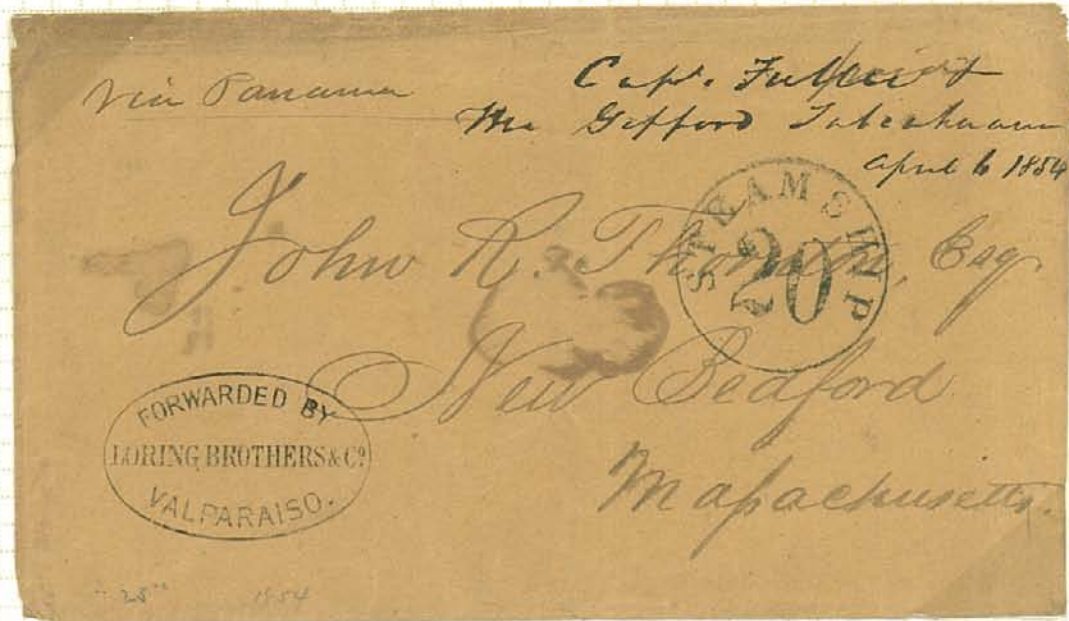 via Panama
Capt.
Mr Gifford Talcahuano
April 6 1854
STEAMSHIP
20
John R. Thornton, Esq.
New Bedford
Massachusetts.
FORWARDED BY
LORING BROTHERS & Co.
VALPARAISO.
1854